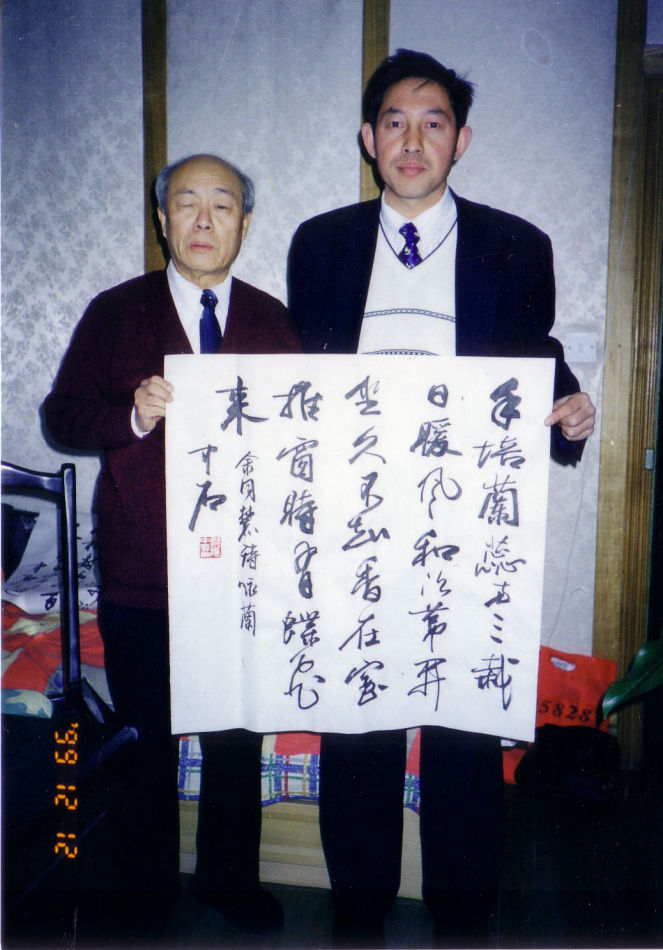 手培蘭蕊两三栽
日暖风和次第开
坐久不知香在室
推窗時有蝶飛
来
余同麓詩咏蘭
中石
5828
'99 12 12